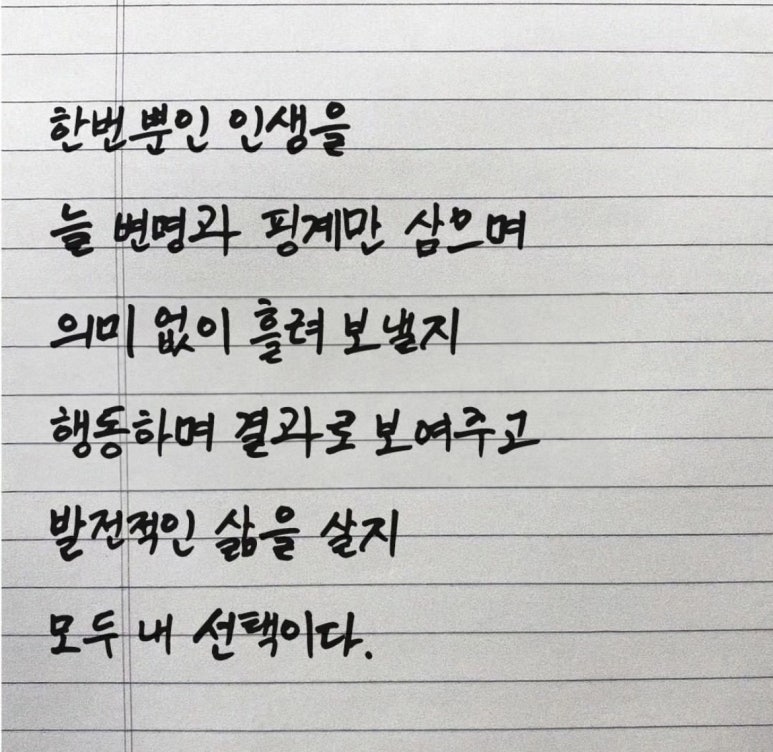 한번뿐인 인생을
늘 변명과 핑계만 삼으며
의미 없이 흘려 보낼지
행동하며 결과로 보여주고
발전적인 삶을 살지
모두 내 선택이다.